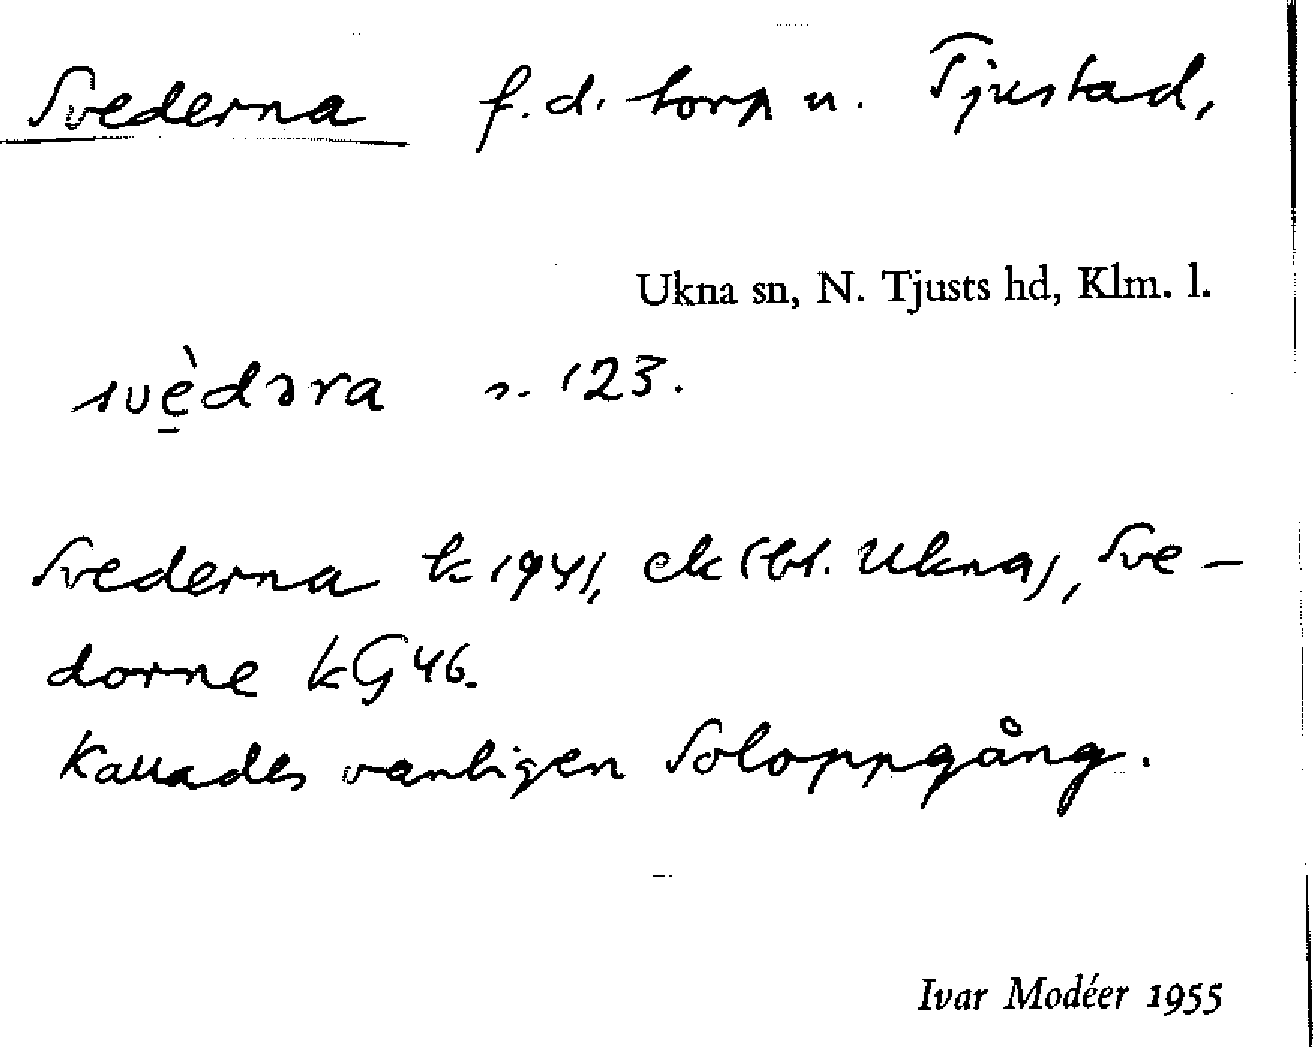 Svederna f.d. torp u. Tjustad,
Ukna sn, N. Tjusts hd, Klm. l.
svè̱dəra s. 123.
Svederna k 1941, ek (bl. Ukna), Sve-
dorne kG 46.
Kallades vanligen Soloppgång.
Ivar Modéer 1955